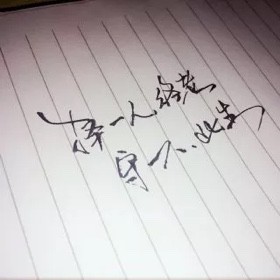 择一人终老
守一人此生